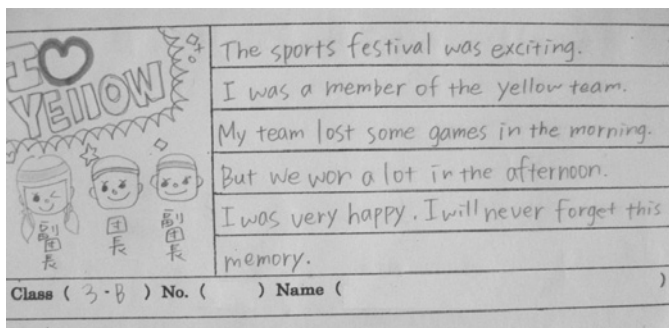 I♡
YEllOW
副団長
団長
副団長
The sports festival was exciting.
I was a member of the yellow team.
My team lost some games in the morning.
But we won a lot in the afternoon.
I was very happy. I will never forget this
memory.
Class ( 3-B ) No. ( ) Name ( )